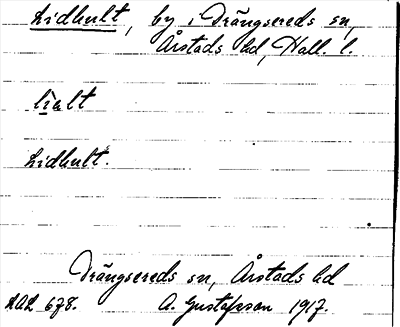 Lidhult, by i Drängsereds sn,
Årstads hd, Hall. l.
lialt
Lidhult.
Drängsereds sn, Årstads hd
LAL 678. A. Gustafsson 1917.